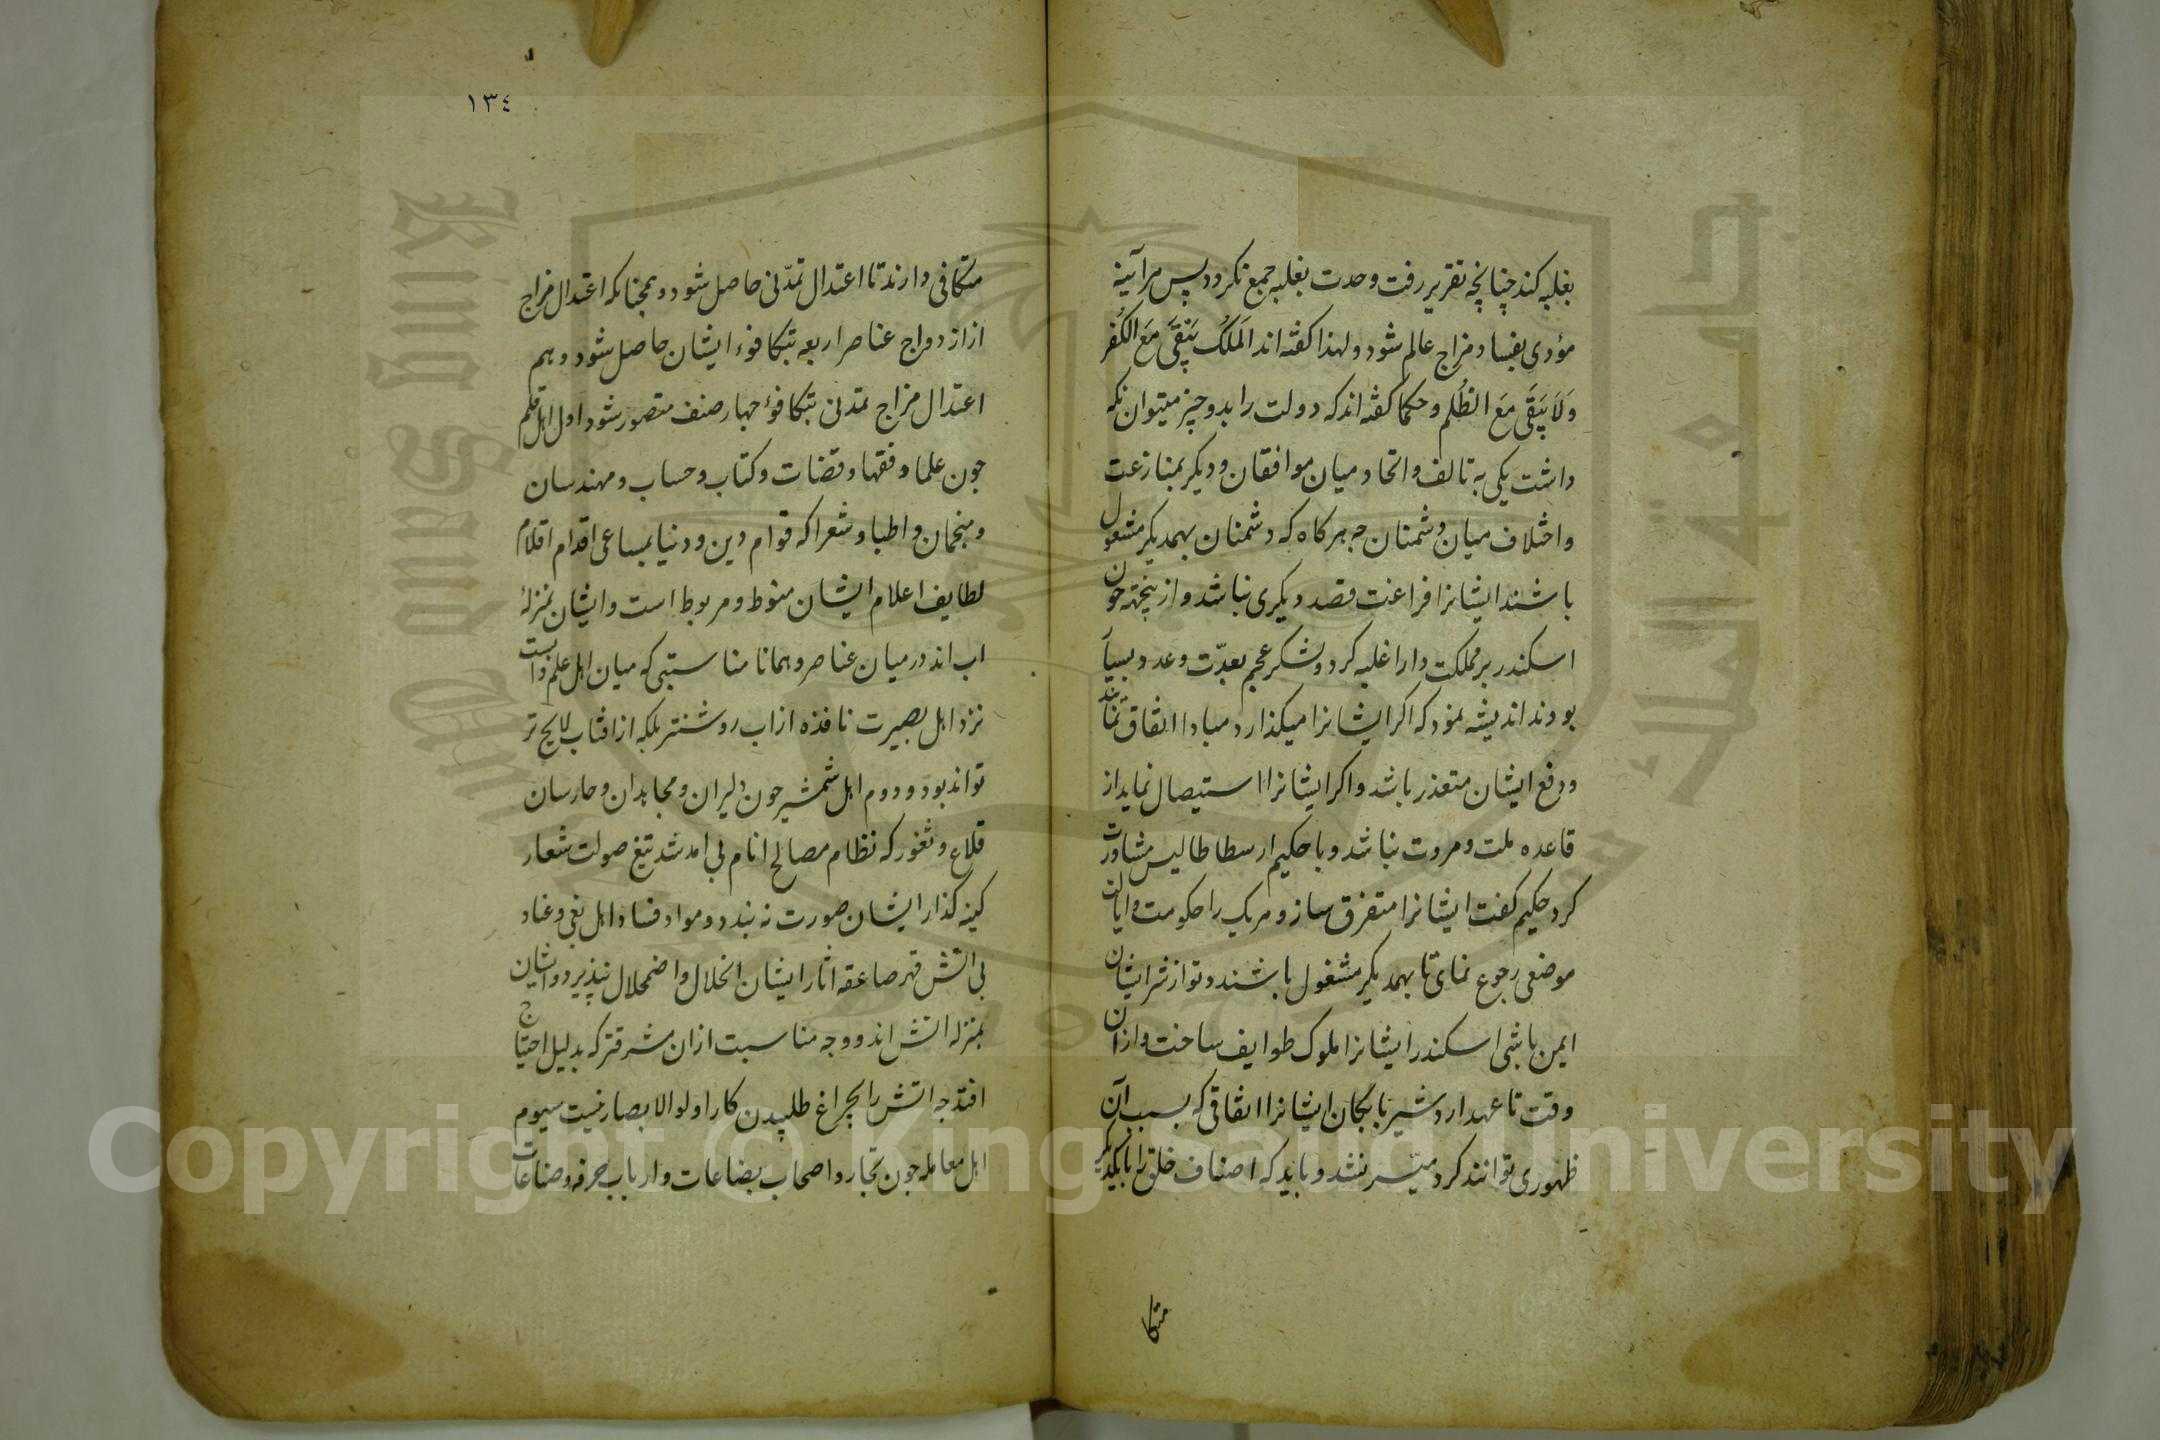 بغلبه کند چنانچه تقریر رفت وحدت بغلبه جمع نکرود پس هرآینه
مؤدی بفساد مزاج عالم شود و لهذا کفته اند اَلمَلکُ یَبْقَی مَعَ الکُفر
وَلَا یَبَقَی مَعَ الظُلم و حکما کفته اند که دولت را بدو چیز میتوان نکه
داشت یکی به تالف و اتحاد میان موافقان و دیکر بمنازعت
و اختلاف میان دشمنان چه هرکاه که دشمنان بهمدیکر مشغول
باشند ایشانرا فراغت قصد دیکری نباشد و از ینجهته چون
اسکندر بر مملکت دارا غلبه کرد و لشکر عجم بعدّت و عدد بسیار
بودند اندیشه نمود که اکر ایشانرا میکذارد مبادا اتفاق نمایند
و دفع ایشان متعذر باشد و اکر ایشانرا استیصال نماید از
قاعده ملت و مروت نباشد و با حکیم ارسطاطالیس مشاورت
کرد حکیم کفت ایشانرا متفرق ساز و هریک را حکومت و ایالت
موضعی رجوع نمای تا بهمدیکر مشغول باشند و تو از شر ایشان
ایمن باشی اسکندر ایشانرا ملوک طوایف ساخت و ازان
وقت تا عهد اردشیر بابکان ایشانرا اتفاقی که بسبب آن
ظهوری توانند کرد میّسر نشد و باید که اصناف خلق را با یکدیکر
متکا
١٣٤
متکافی دارند تا اعتدال تمدّنی حاصل شود و همچنانکه اعتدال مزاج
از ازدواج عناصر اربعه بتکافوء ایشان حاصل شود و هم
اعتدال مزاج تمدنی بتکافوء چهار صنف متصور شود اول اهل قلم
چون علما و فقها و قضات و کتاب و حساب و مهندسان
و منجمان و اطبا و شعرا که قوام دین و دنیا بمساعی اقدام اقلام
لطایف اعلام ایشان منوط و مربوط است و ایشان بمنزلهٔ
اب اند در میان عناصر و همانا مناسبتی که میان اهل علم و ابست
نزد اهل بصیرت نافذه از اب روشنتر بلکه از افتاب لایح تر
تواند بود و دوم اهل شمشیر چون دلیران و مجاهدان و حارسان
قلاع و ثغور که نظام مصالح انام بی امد شد تیغ صولت شعار
کینه کذار ایشان صورت نه بندد و مواد فساد اهل بغی و عناد
بی اتش قهر صاعقه اثار ایشان انحلال و اضمحلال نپذیرد و ایشان
بمنزله اتش اند و وجه مناسبت ازان مشرقتر که بدلیل احتیاج
افتد چه اتش را بچراغ طلبیدن کار اولوالابصار نیست سیوم
اهل معامله چون تجار و اصحاب بضاعات و ارباب حرفه و صناعات
King Saud University
جامعة الملك سعود
1957
Copyright © King Saud University